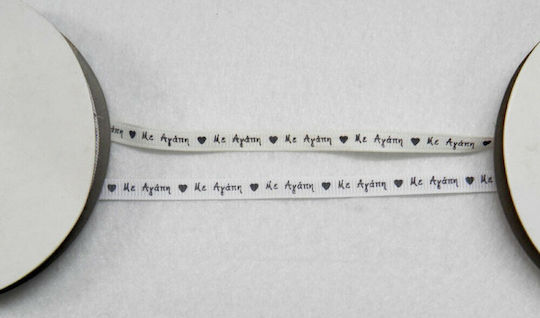 άπη ♥ Με Αγάπη ♥ Με Αγάπη ♥ Με Αγάπη ♥ Με Αγάπη ♥ Με Αγάπη ♥
♥ Με Αγάπη ♥ Με Αγάπη ♥ Με Αγάπη ♥ Με Αγάπη ♥ Με Αγάπη ♥ Με